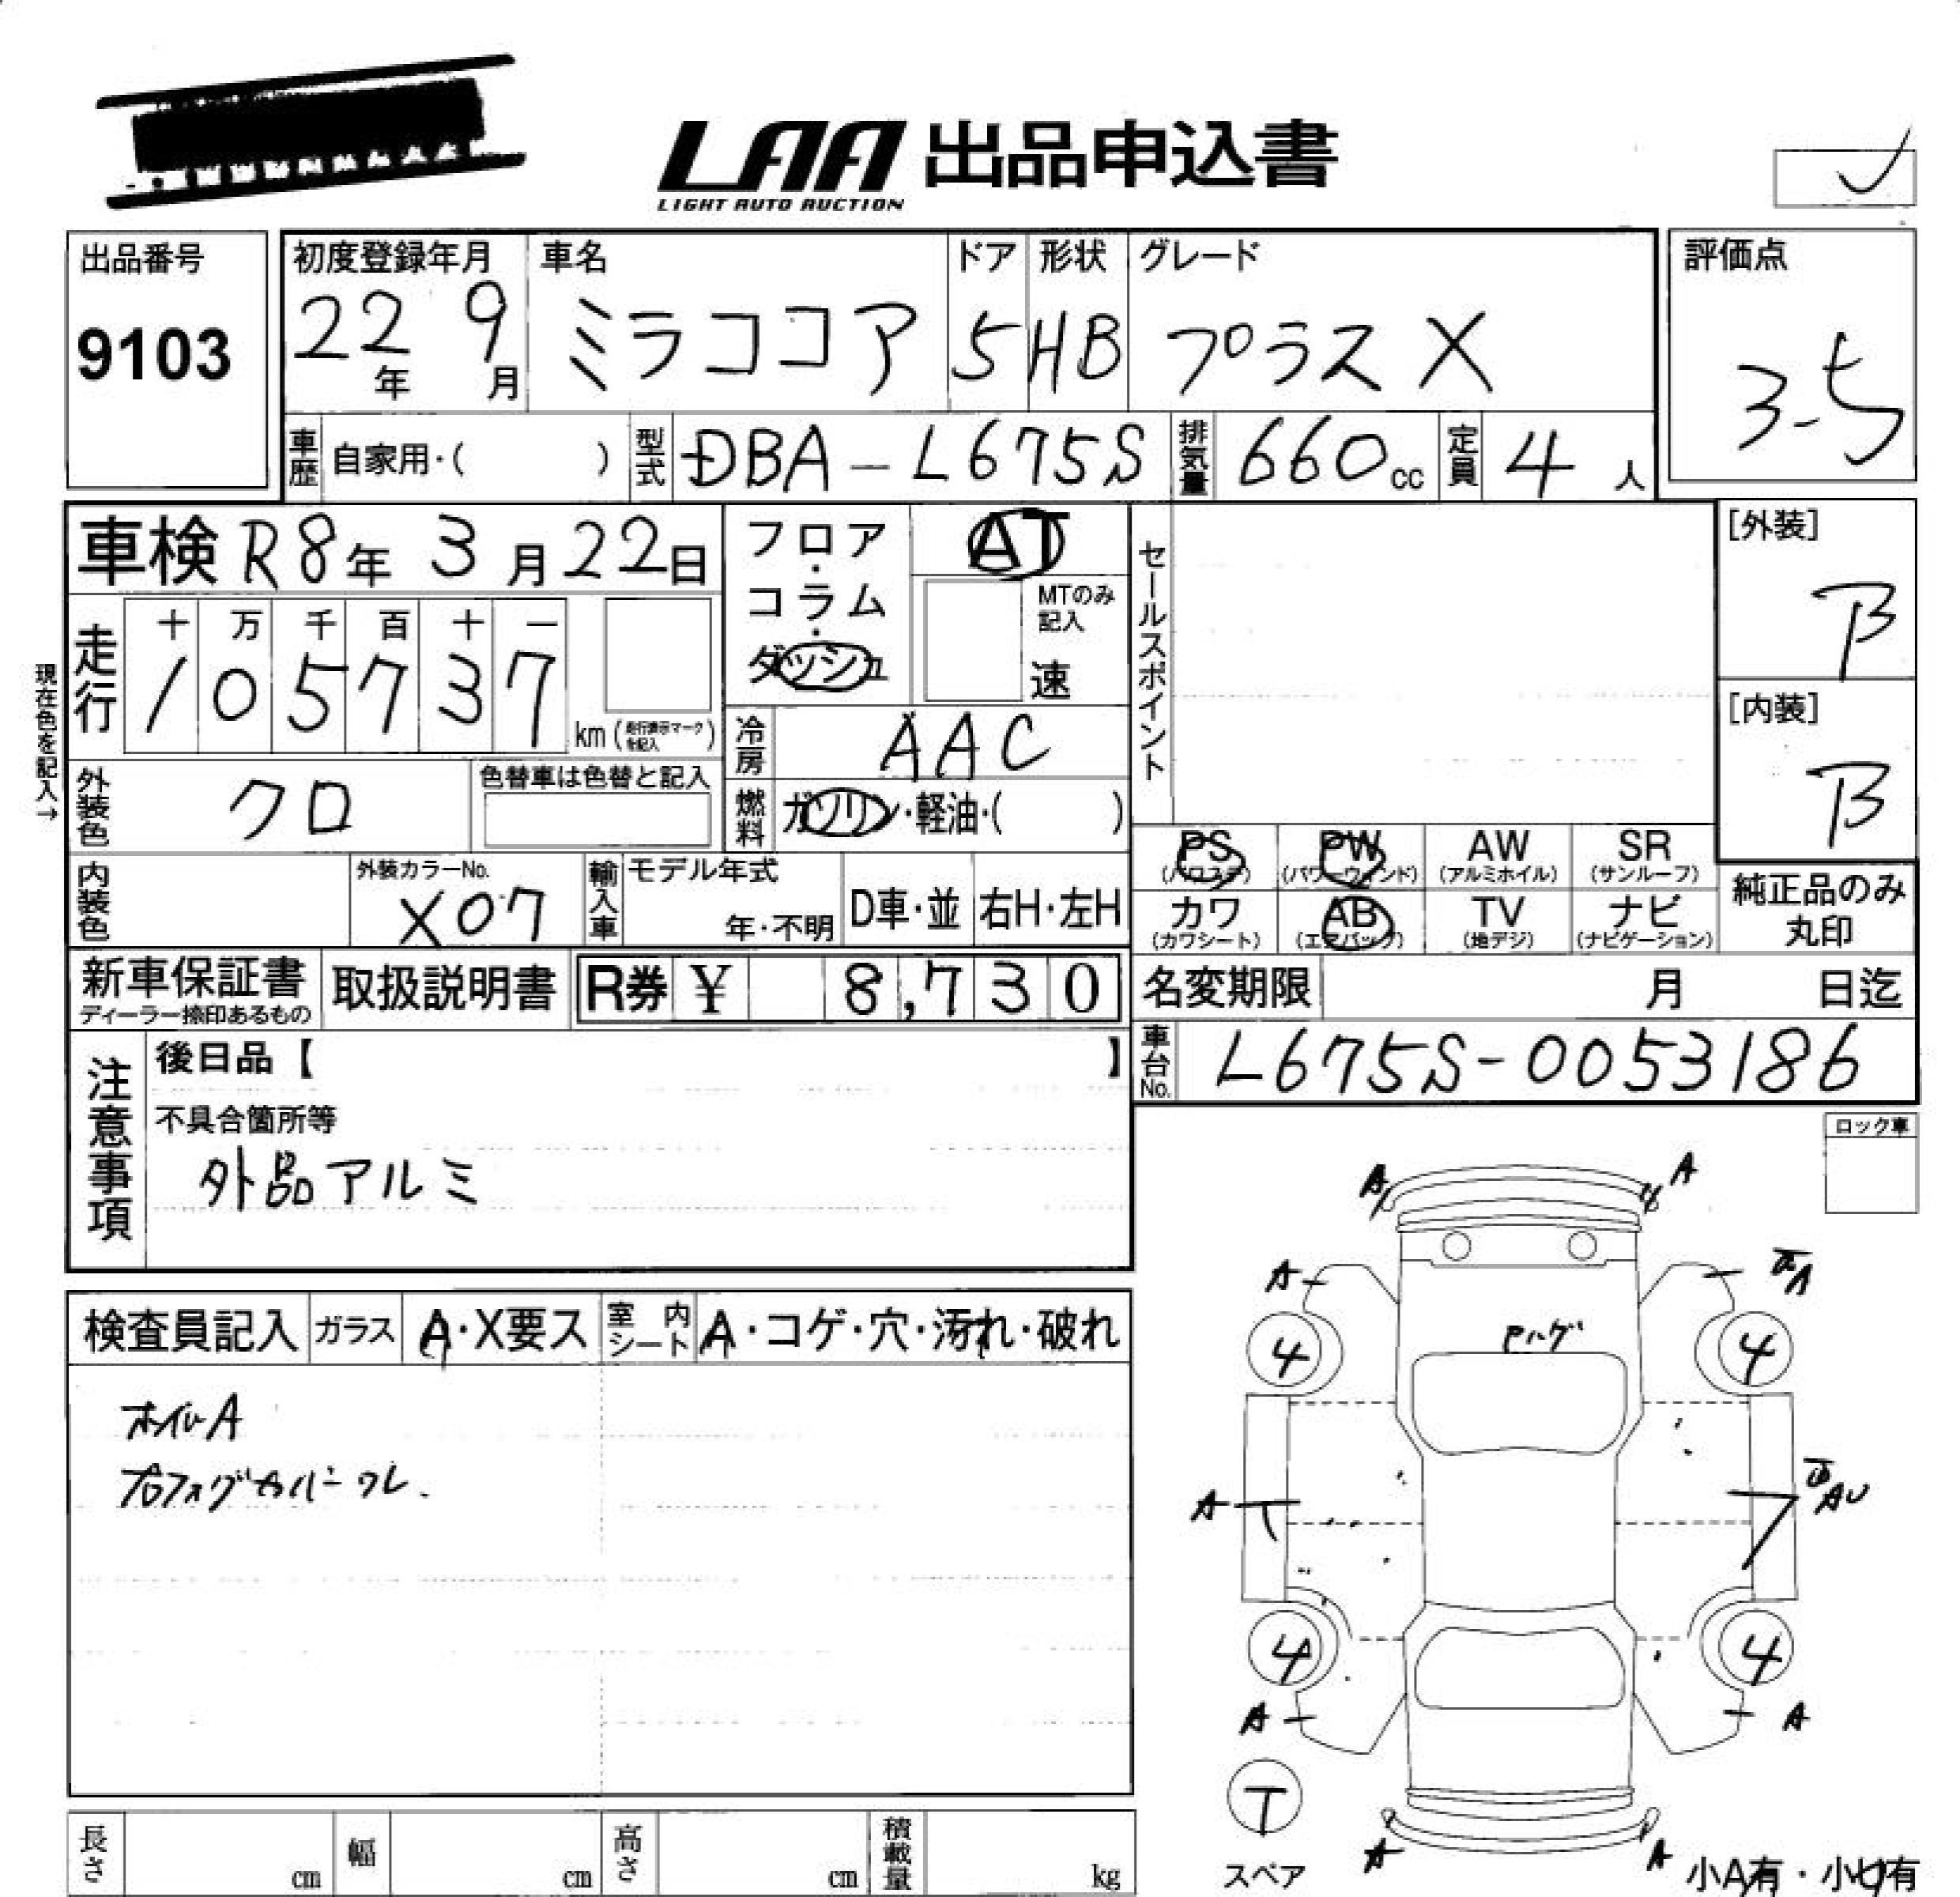 LAA 出品申込書
LIGHT AUTO AUCTION
出品番号
9103
初度登録年月 車名 ドア 形状 グレード
22年 9月 ミラココア 5 HB プラス X
評価点
3.5
車歴 自家用・( ) 型式 DBA-L675S 排気量 660cc 定員 4人
車検 R8年 3月 22日
フロア・コラム・ダッシュ
AT
MTのみ記入
速
セールスポイント
[外装]
B
[内装]
B
現在色を記入→
走行 十 万 千 百 十 一
1 0 5 7 3 7 km (走行表示マークを記入)
冷房 AAC
外装色 クロ 色替車は色替と記入
燃料 ガソリン・軽油・( )
PS (パワステ) PW (パワーウィンド) AW (アルミホイル) SR (サンルーフ)
カワ (カワシート) AB (エアバッグ) TV (地デジ) ナビ (ナビゲーション)
純正品のみ丸印
内装色 外装カラーNo. X07
輸入車 モデル年式 年・不明 D車・並 右H・左H
新車保証書 ディーラー捺印あるもの 取扱説明書 R券 ¥ 8,730
名変期限 月 日迄
車台No. L675S-0053186
注意事項
後日品【 】
不具合箇所等
外品アルミ
ロック車
検査員記入 ガラス A・X要ス 室内シート A・コゲ・穴・汚れ・破れ
ホイルA
フォグカバーワレ.
A A
A A
4 ハゲ 4
A AU
4 4
A A
T
スペア
A A
小A有・小U有
長さ cm 幅 cm 高さ cm 積載量 kg